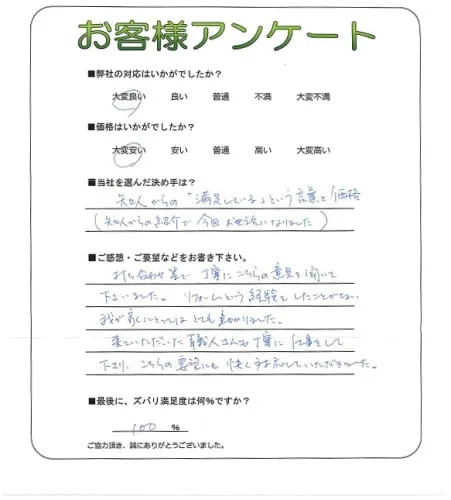 お客様アンケート
■弊社の対応はいかがでしたか？
大変良い 良い 普通 不満 大変不満
■価格はいかがでしたか？
大変安い 安い 普通 高い 大変高い
■当社を選んだ決め手は？
知人からの「満足している」という言葉と価格
(知人からの紹介で今回お世話になりました)
■ご感想・ご要望などをお書き下さい。
打ち合わせ等で丁寧にこちらの意見を聞いて
下さいました。リフォームという経験をしたことがない
我が家にとってはとても助かりました。
来ていただいた職人さんも丁寧に仕事をして
下さり、こちらの要望にも快く対応していただきました。
■最後に、ズバリ満足度は何％ですか？
100 ％
ご協力頂き、誠にありがとうございました。